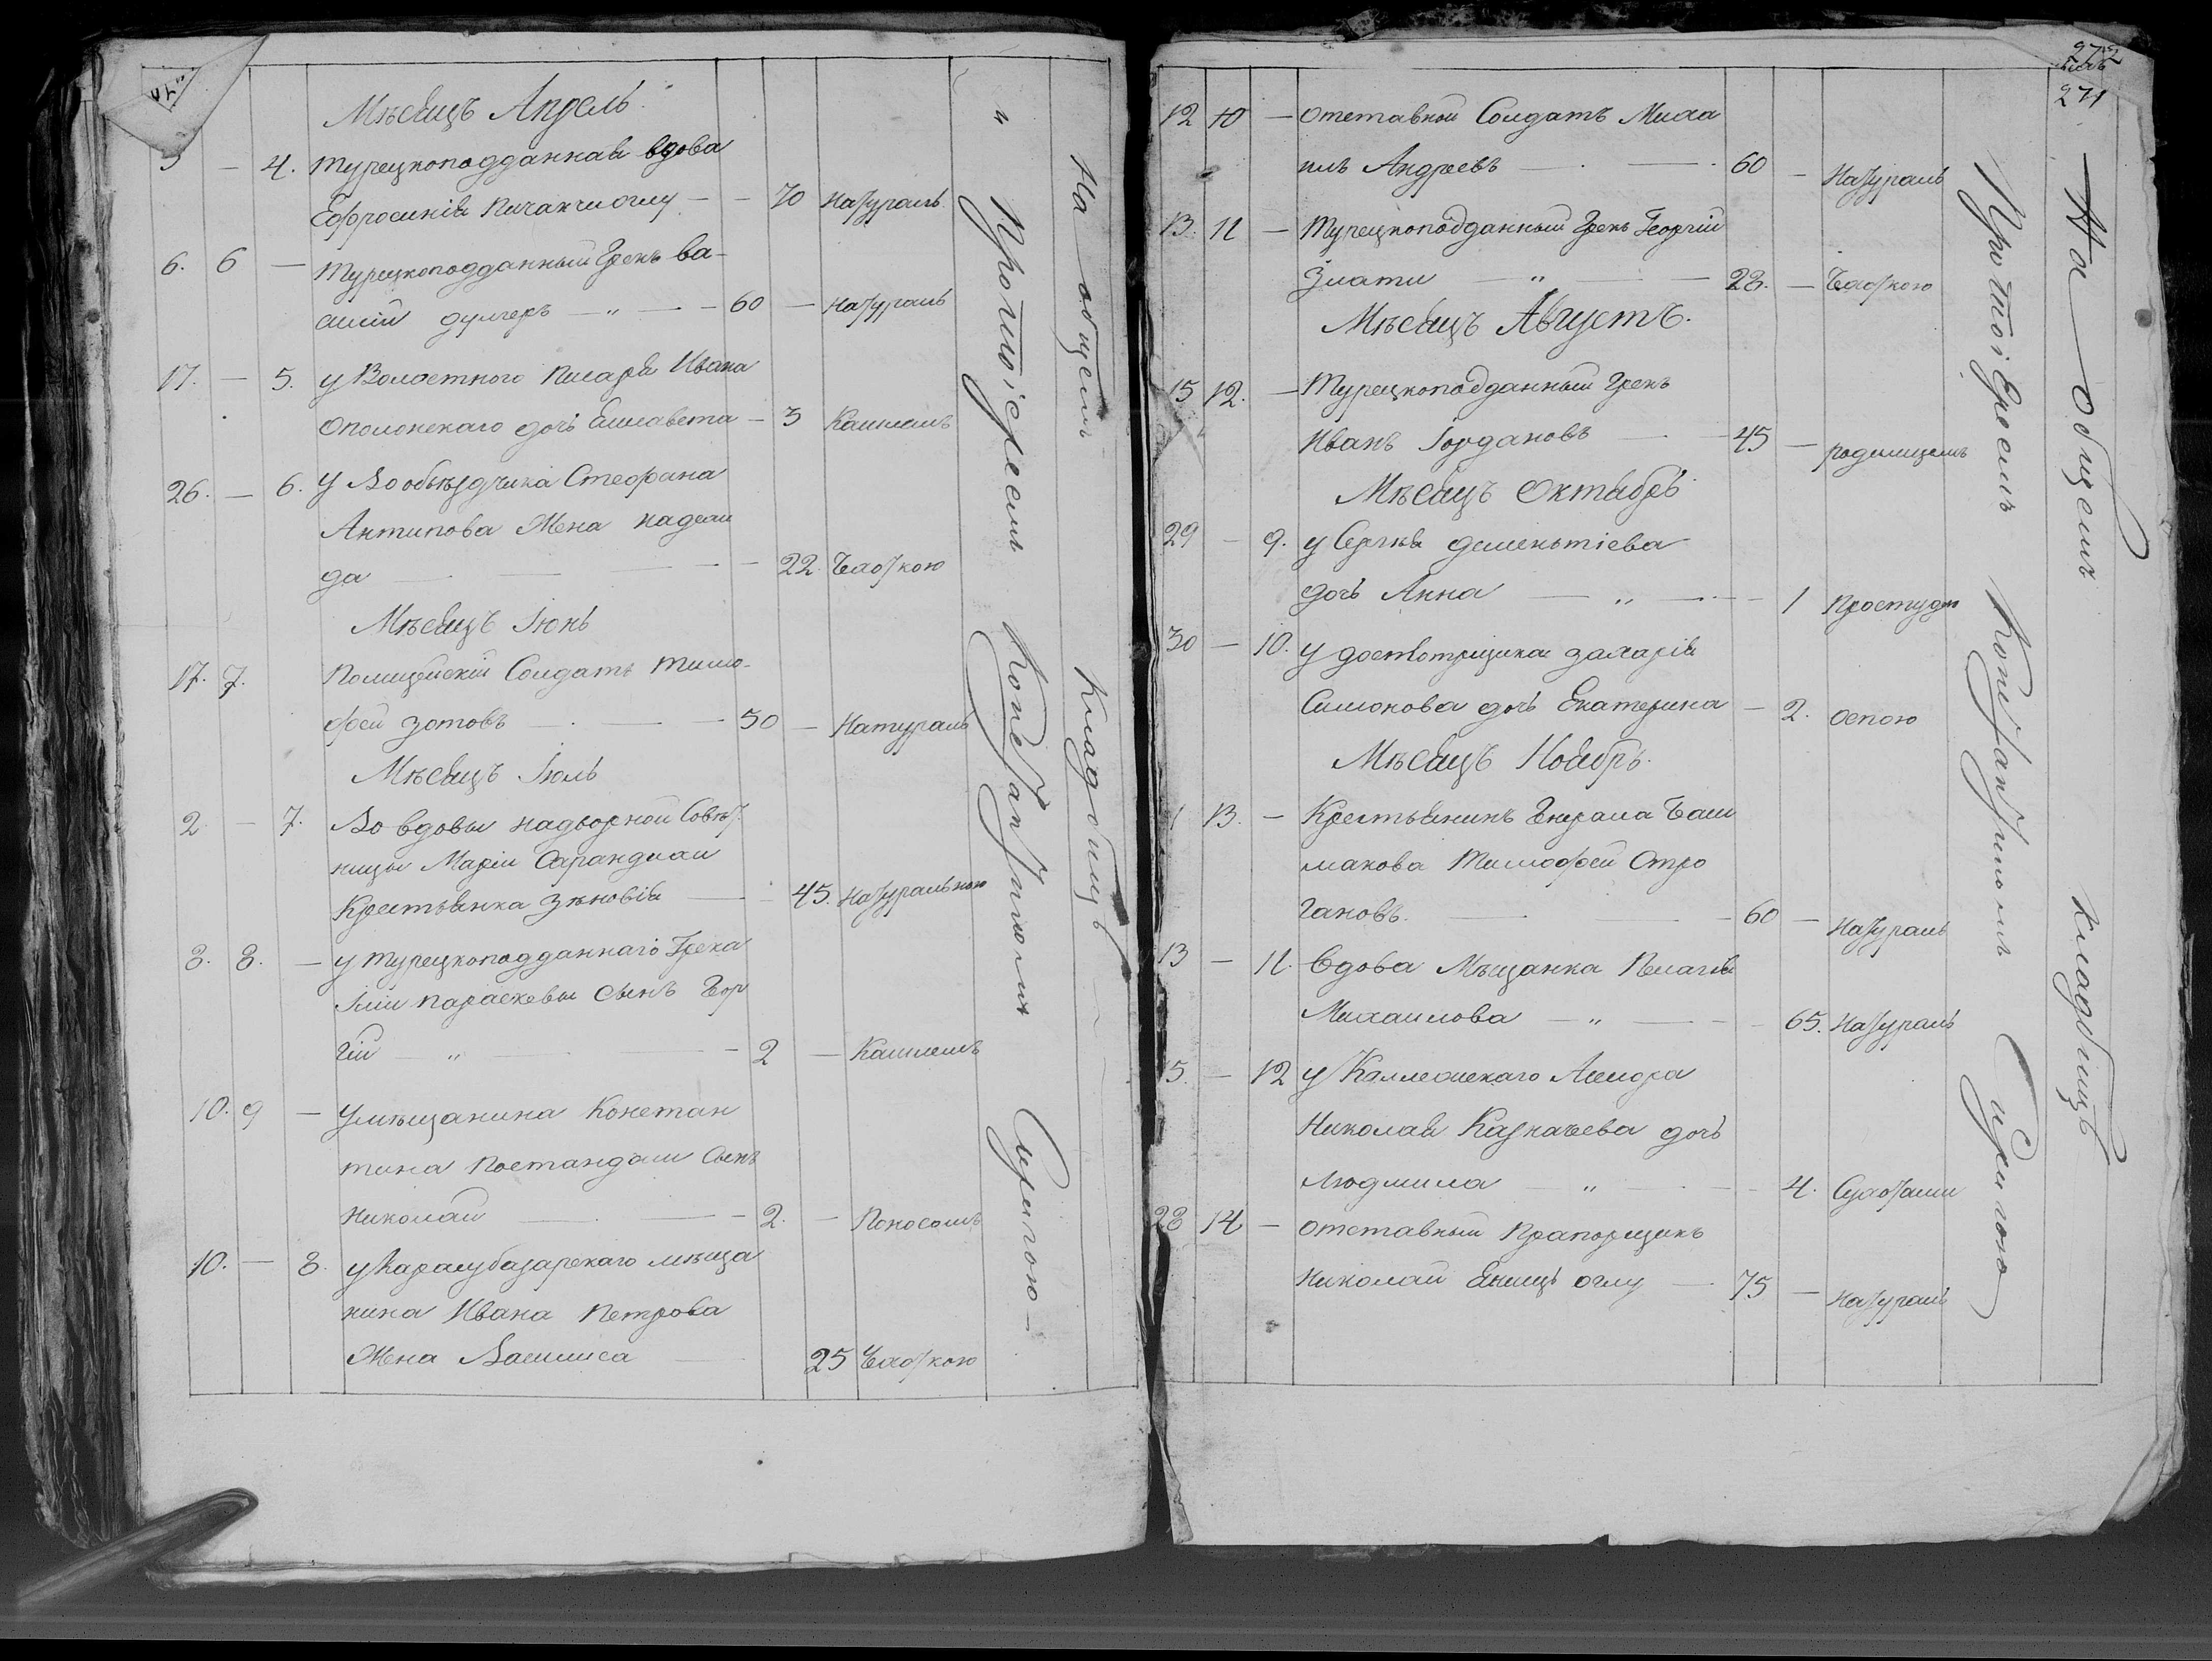 Мѣсяцъ Апрель
5 — 4. турецкоподданная вдова
Ефросинія Пичакчиоглу — — 70 натураль
6. 6 — Турецкоподданный Грекъ Ва-
силій дулгеръ — „ — 60 — натураль
17. — 5. у Волостного Писаря Ивана
Ополонскаго дочь Елисавета — 3 Кашлемъ
26. — 6. у Вообъѣздчика Стефана
Антипова Жена надеж
да — 22. Чахоткою
Мѣсяцъ Іюнь
17. 7. Полицейскій Солдатъ Тимо-
фей Зотовъ — 50 — Натураль
Мѣсяцъ Іюль
2 — 7. Во вдовы надворной Совѣт.
ницы Маріи Сарандиаи
Крестьянка Зѣновія — 45. Натуральною
8. 8. — у турецкоподданнаго Грека
Параскевы сынъ Геор
гій — „ — 2 — Кашлемъ
10. 9 — У мѣщанина Констан
тина Постандоли Сынъ
Николай — 2. — Поносомъ
10. — 8. у Карасубазарскаго мѣща
нина Ивана Петрова
Жена Василиса — 25 Чахоткою
Протоіереемъ Константиномъ Спираною
На общемъ Кладбищѣ
272
271
12 10 — отставной Солдатъ Миха
илъ Андреевъ — 60 — Натураль
13. 11 — Турецкоподданный Грекъ Георгій
Злати — „ — 28. — Чахоткою
Мѣсяцъ Августъ.
15 12. — Турецкоподданный Грекъ
Иванъ Іордановъ — 45 — родимцемъ
Мѣсяцъ Октябрь
29 — 9. у Сергѣя дементіева
дочь Анна — „ — 1 Простуды
30 — 10. у досмотрщика Захарія
Симонова дочь Екатерина — 2. оспою
Мѣсяцъ Ноябрь.
1 13. — Крестьянинъ Генерала Баш
макова Тимофей Стро
гановъ. — 60 — Натураль
13 — 11. Вдова Мѣщанка Пелагія
Михаилова — „ — 65. Натураль
15. — 12 у Коллежскаго Асесора
Николая Казначеева дочь
Людмила — „ — 4. Сухотами
28 14 — отставный Прапорщикъ
Николай Янищъ оглу — 75 — Натураль
Протоіереемъ Константиномъ Спираною
На Общемъ Кладбищѣ